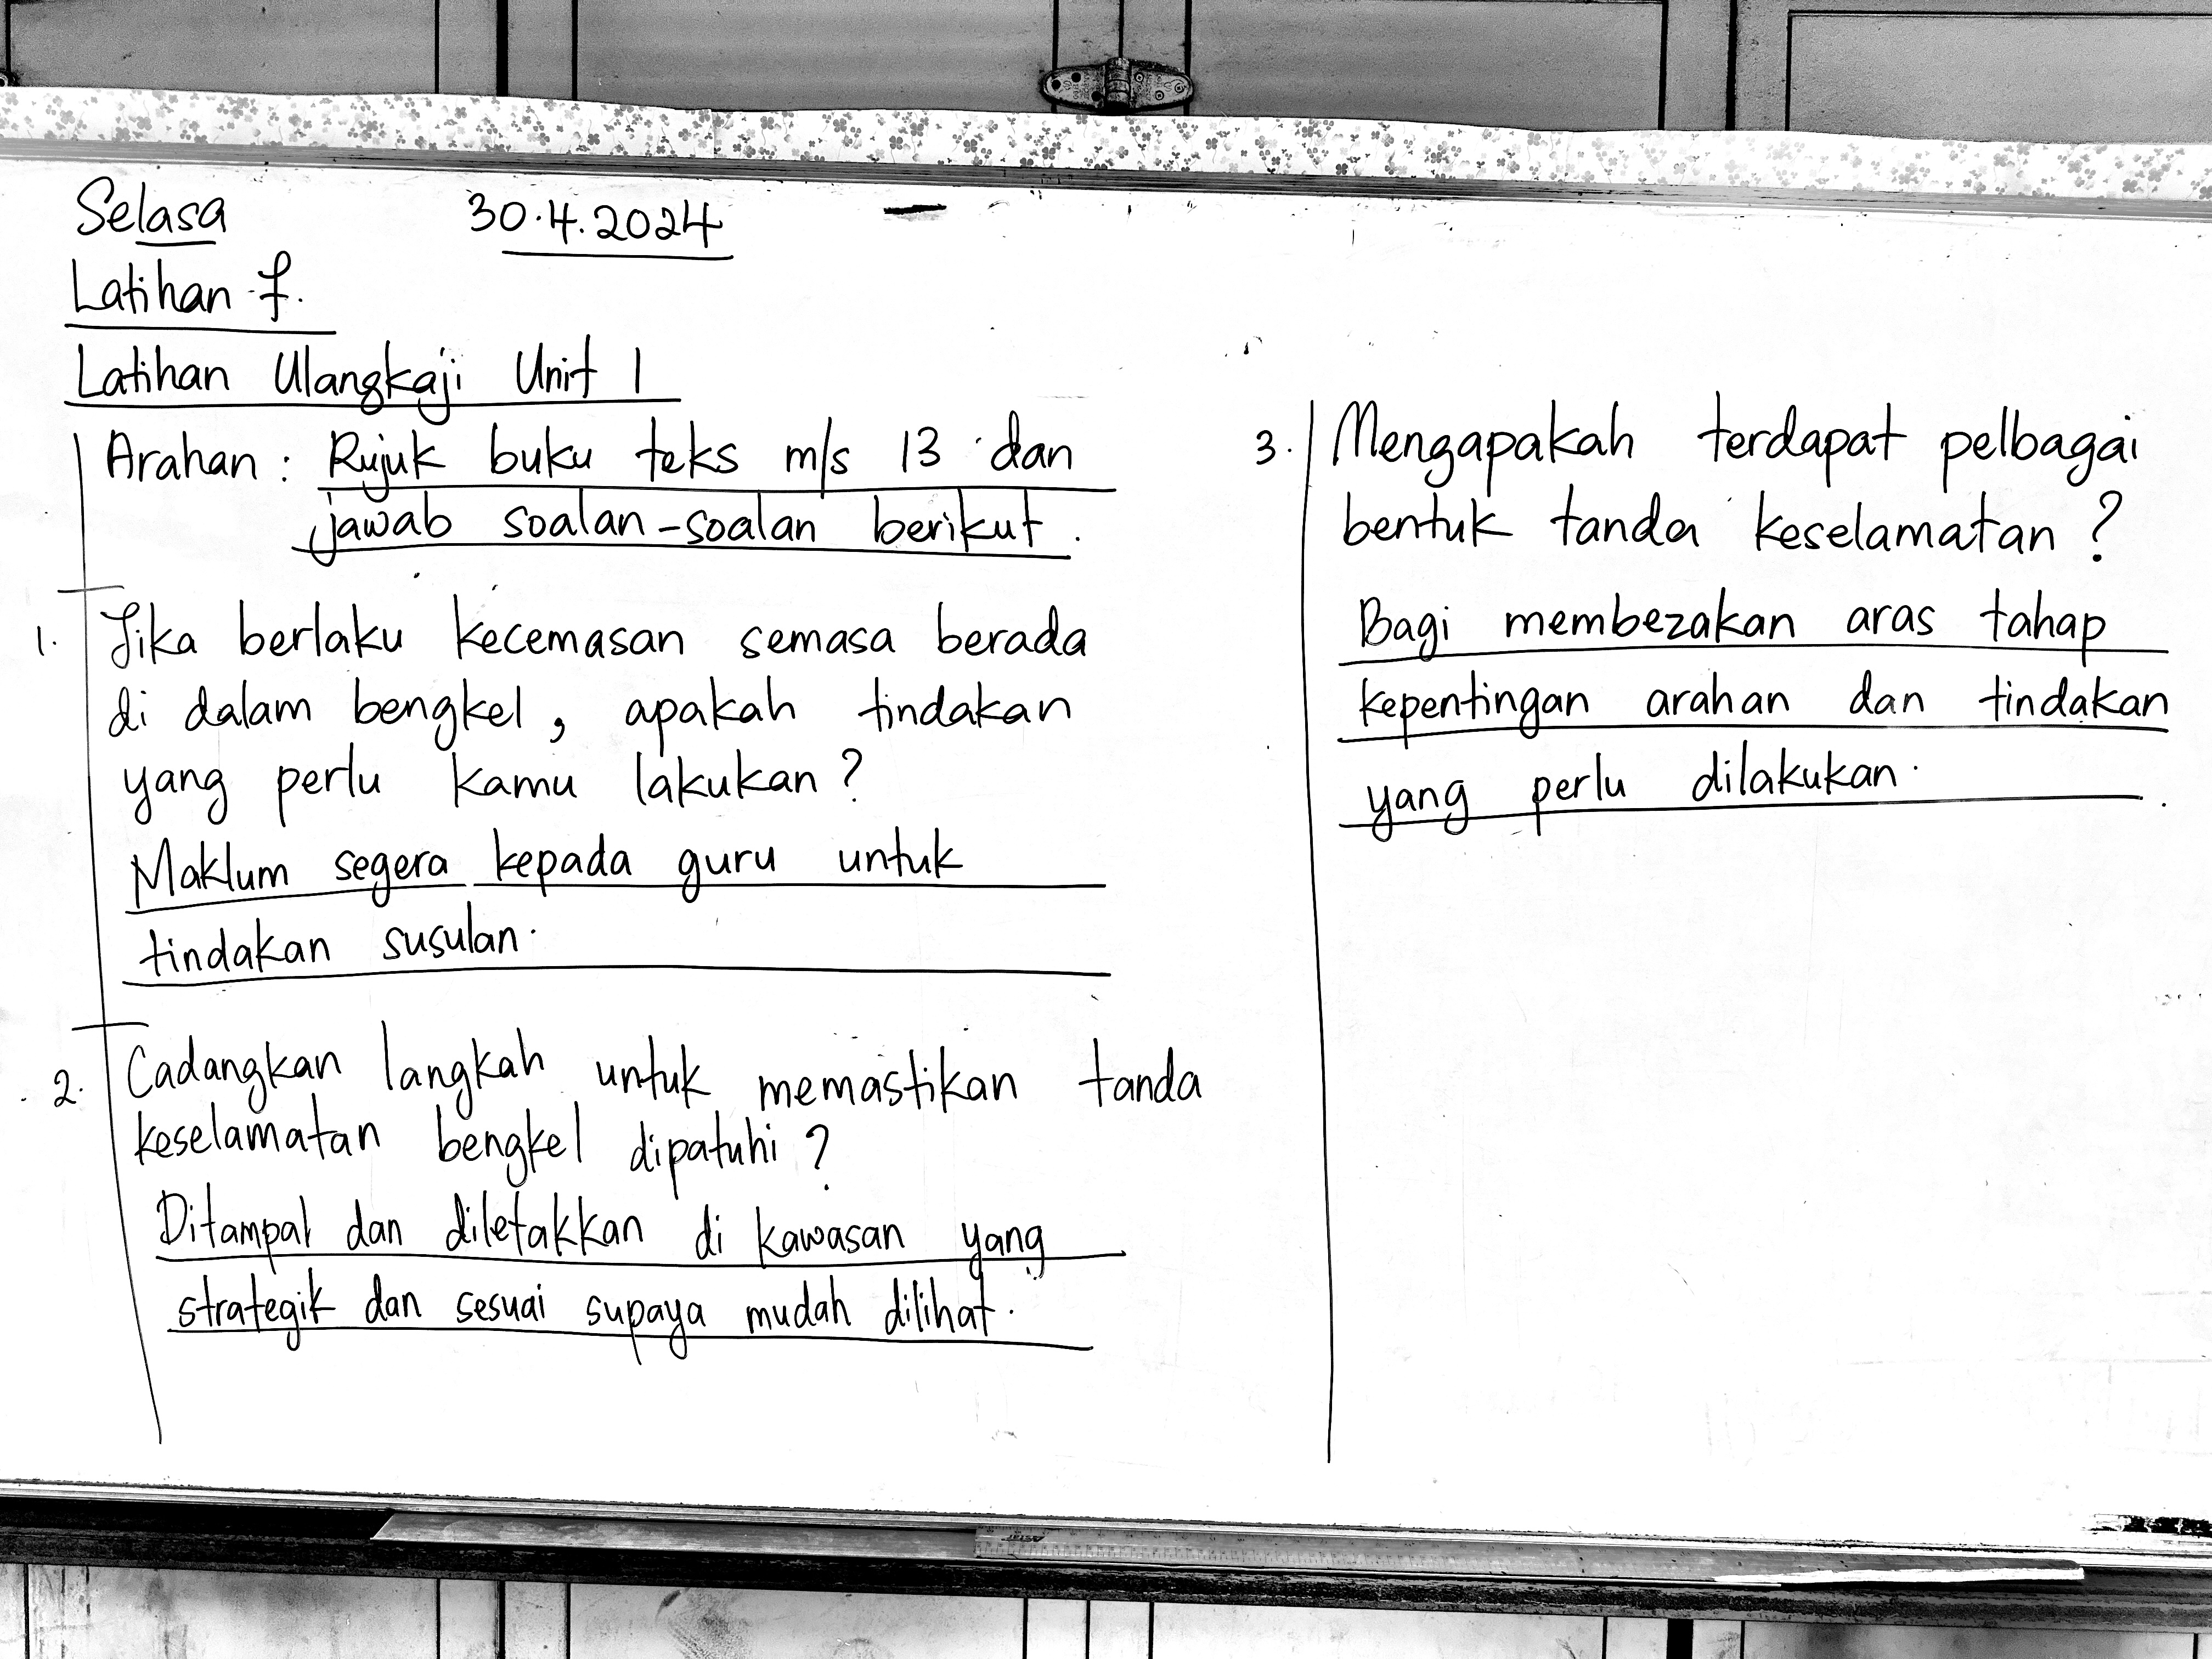 Selasa 30.4.2024
Latihan f.
Latihan Ulangkaji Unit 1
Arahan : Rujuk buku teks m/s 13 dan
jawab soalan-soalan berikut.
1. Jika berlaku kecemasan semasa berada
di dalam bengkel, apakah tindakan
yang perlu kamu lakukan?
Maklum segera kepada guru untuk
tindakan susulan.
2. Cadangkan langkah untuk memastikan tanda
keselamatan bengkel dipatuhi?
Ditampal dan diletakkan di kawasan yang
strategik dan sesuai supaya mudah dilihat.
3. Mengapakah terdapat pelbagai
bentuk tanda keselamatan?
Bagi membezakan aras tahap
kepentingan arahan dan tindakan
yang perlu dilakukan.